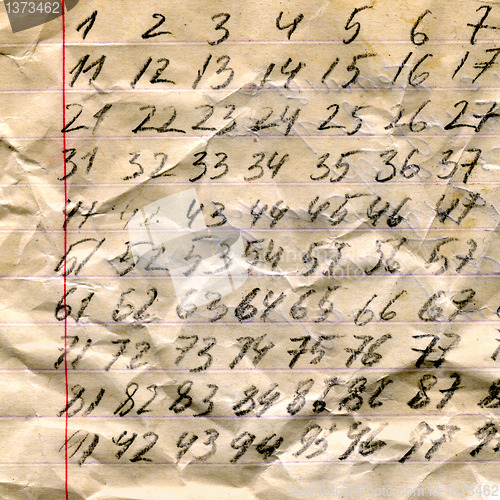 1 2 3 4 5 6 7
11 12 13 14 15 16 17
21 22 23 24 25 26 27
31 32 33 34 35 36 37
41 42 43 44 45 46 47
51 52 53 54 55 56 57
61 52 63 64 65 66 67
71 72 73 74 75 76 77
81 82 83 84 85 86 87
91 92 93 94 95 96 97 9
©TJ37342